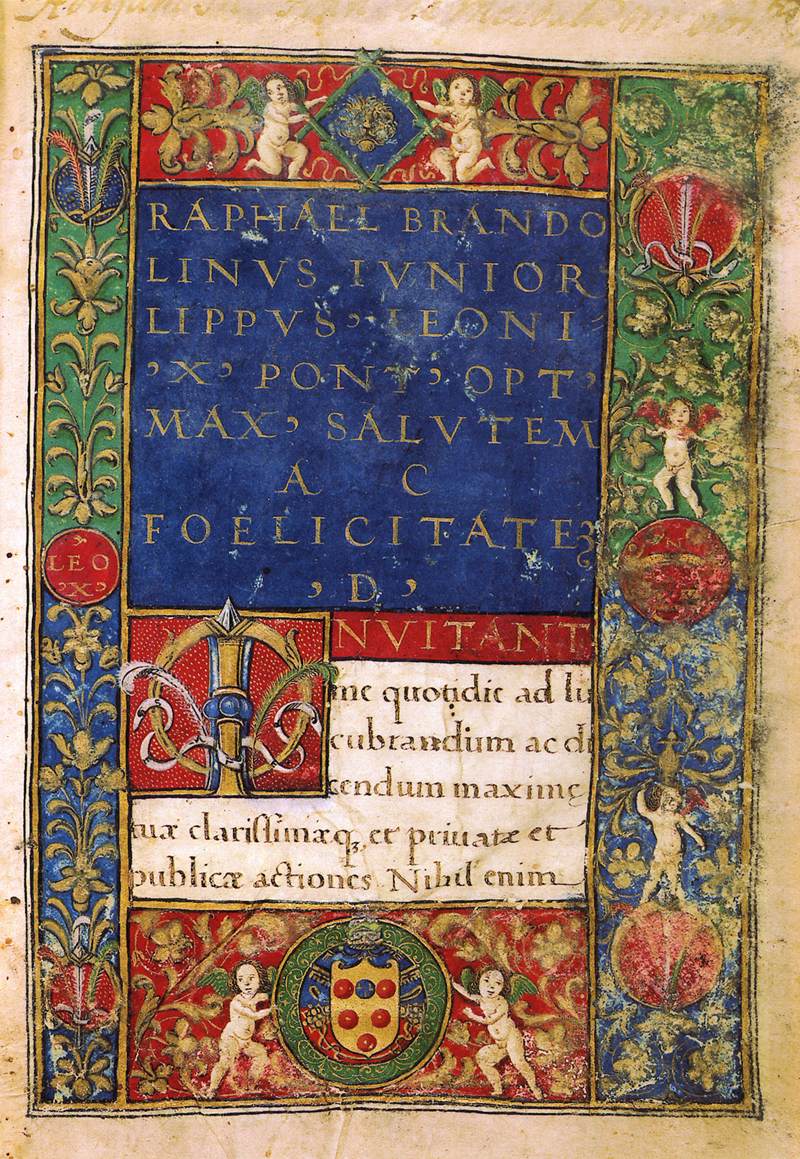 RAPHAEL BRANDO
LINVS IVNIOR
LIPPVS, LEONI
,X, PONT, OPT,
MAX, SALVTEM
A C
FOELICITATEꝫ
,D,
LEO
,X,
INVITANT
me quotidie ad lu
cubrandum ac di
cendum maxime
tuæ clarissimæqꝫ et priuatæ et
publicæ actiones. Nihil enim